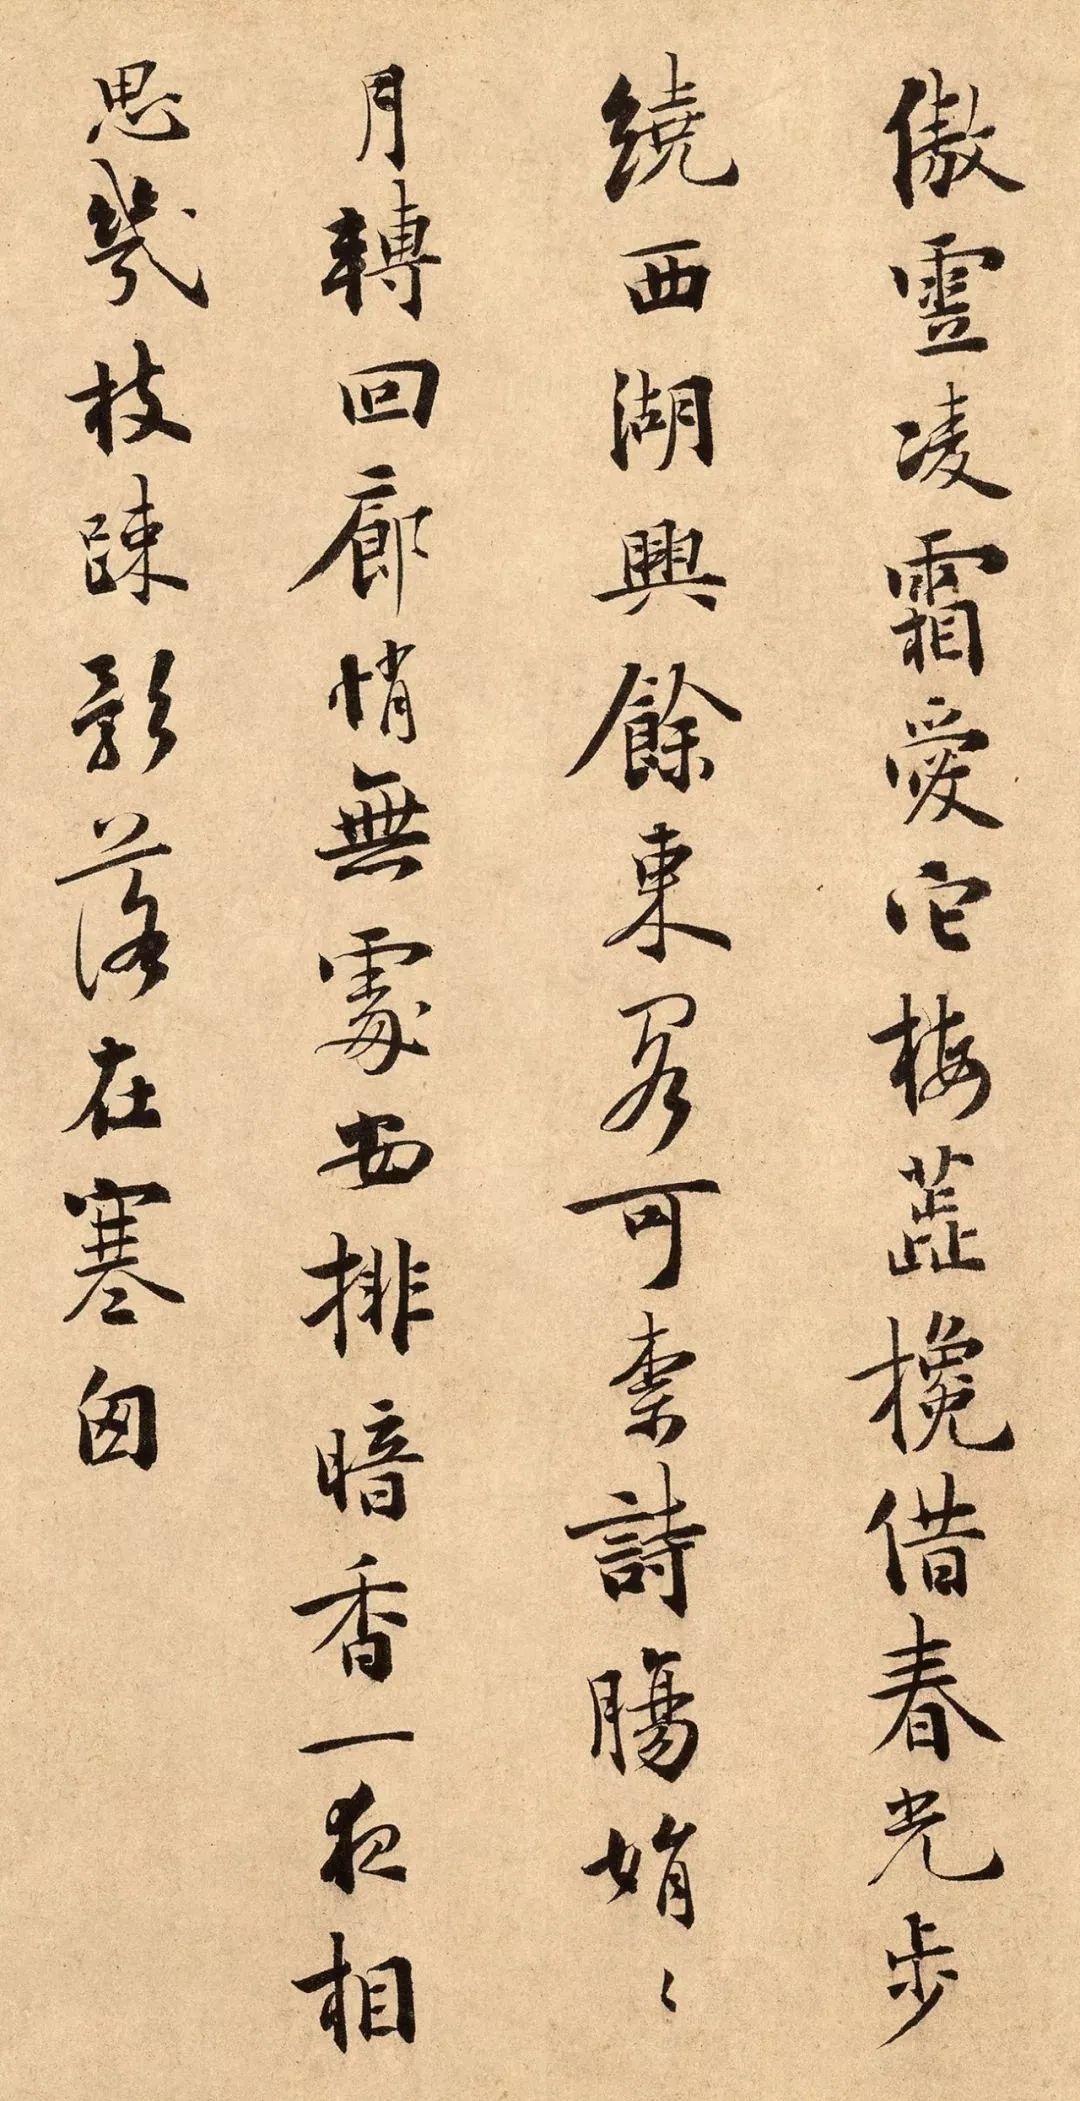 傲雪凌霜愛它梅蕋攙借春光步
繞西湖興餘東閣可柰詩腸娟〻
月轉回廊悄無處安排暗香一夜相
思幾枝疎影落在寒囱